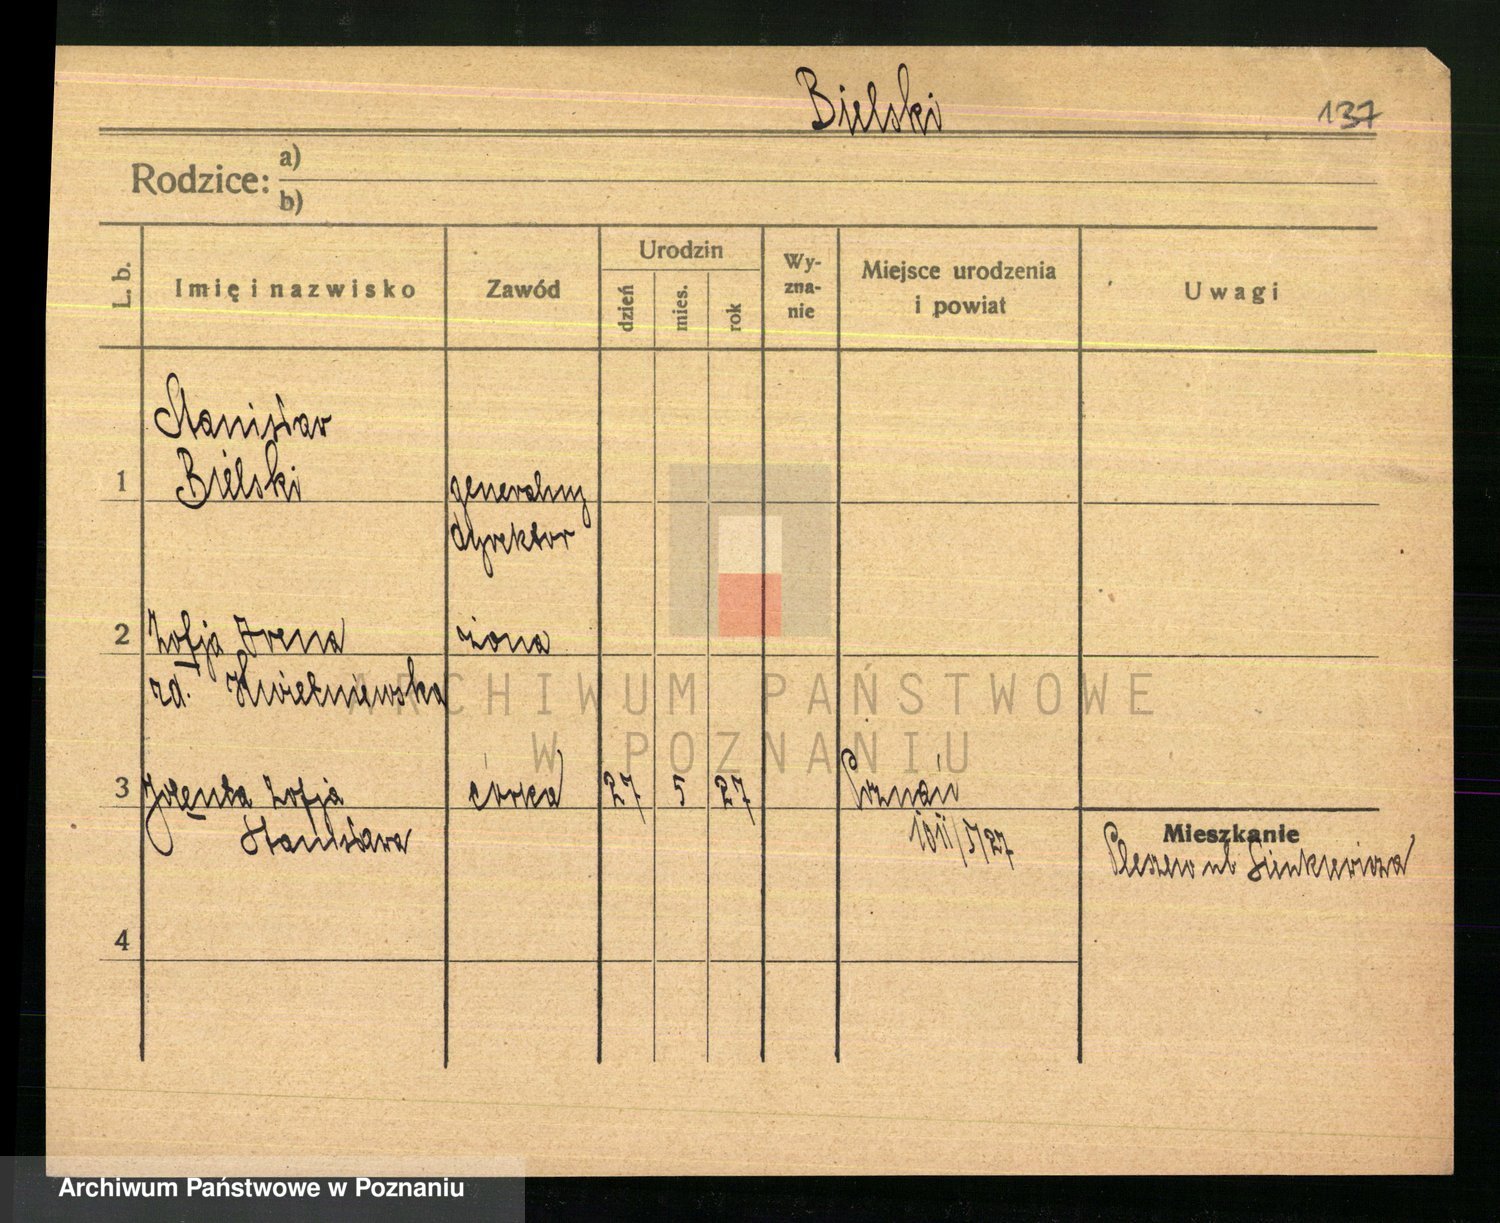 Bielski
137
Rodzice: a)
b)
L. b.
Imię i nazwisko
Zawód
Urodzin
dzień
mies.
rok
Wy-
zna-
nie
Miejsce urodzenia
i powiat
Uwagi
Stanisław
1 Bielski generalny
dyrektor
2 Zofja Irena żona
zd. Kwietniewska
ARCHIWUM PAŃSTWOWE
W POZNANIU
3 Jolenta Zofja córka 27 5 27 Poznań
Stanisława
/5/27
Mieszkanie
Pleszew ul. Sienkiewicza
4
Archiwum Państwowe w Poznaniu